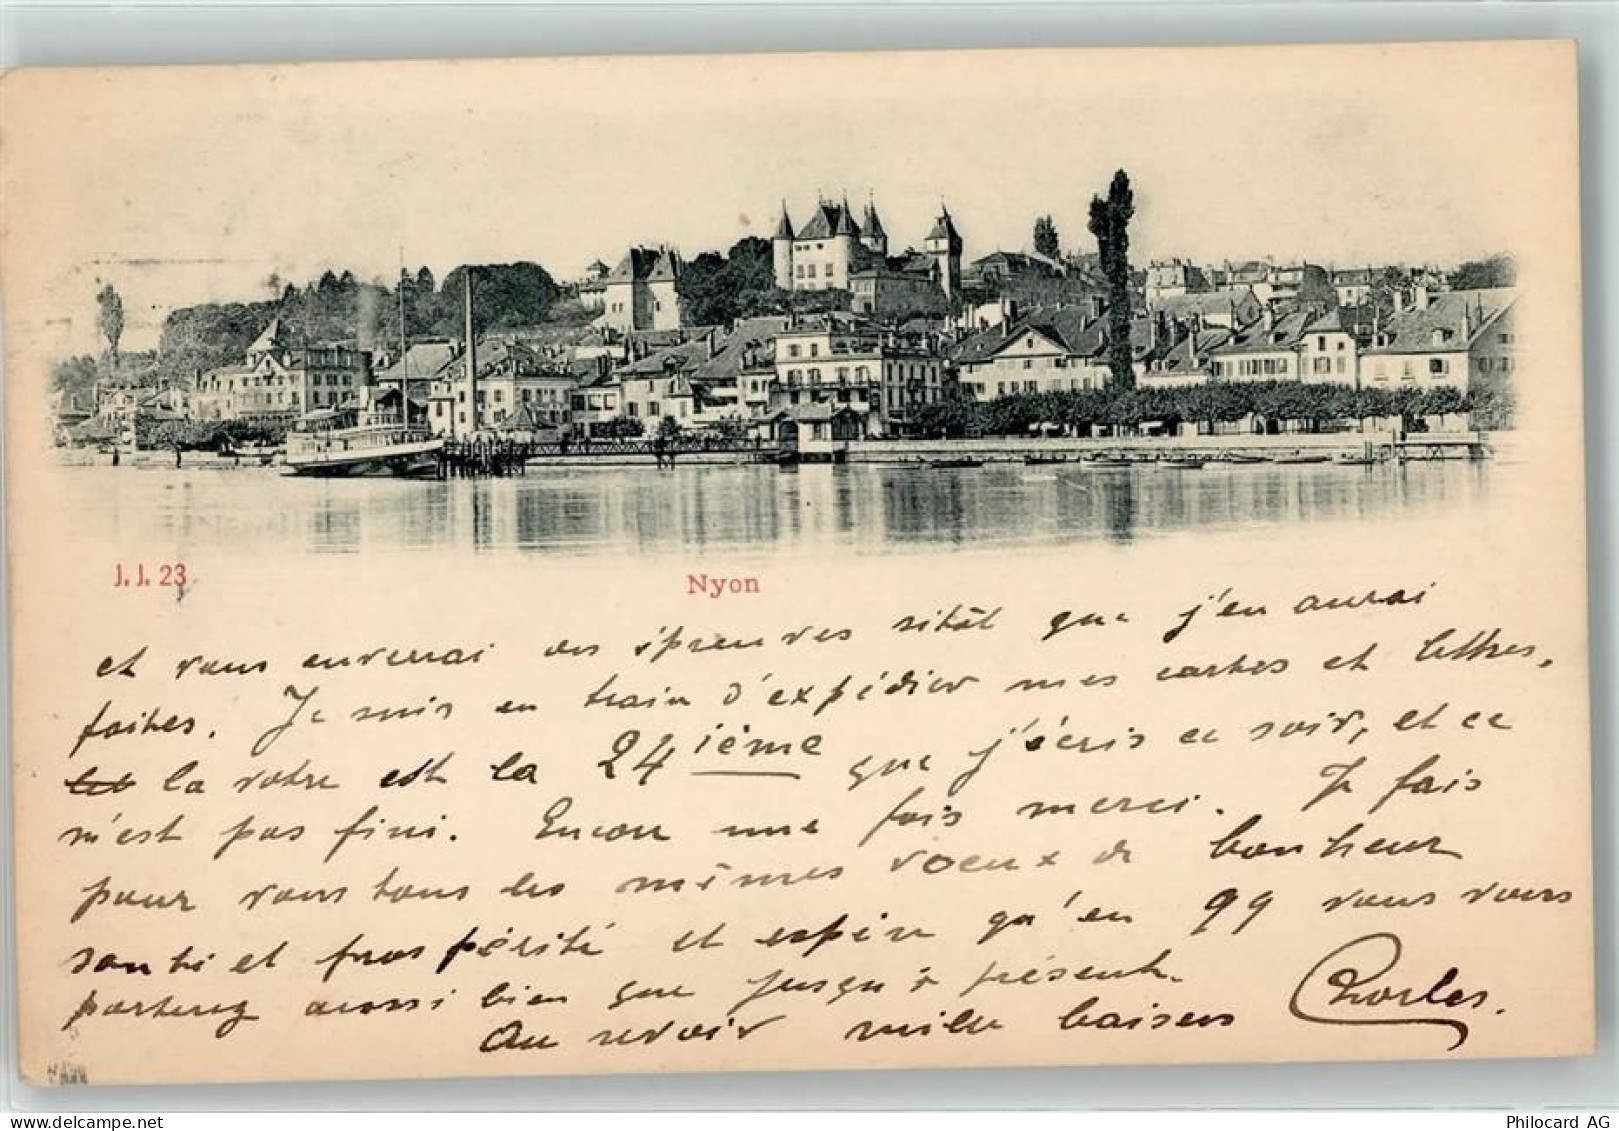 J. J. 23
Nyon
et vous enverrai des épreuves sitôt que j'en aurai
faites. Je suis en train d'expédier mes cartes et lettres,
la votre est la 24 ième que j'écris ce soir, et ce
n'est pas fini. Encore une fois merci. Je fais
pour vous tous les mêmes voeux de bonheur
santé et prospérité et espère qu'en 99 vous vous
porterez aussi bien que jusqu'à présent.
Au revoir mille baisers Charles.
Philocard AG